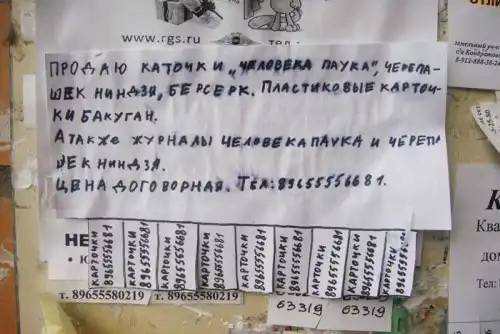 www.rgs.ru
тел.:
ПРОДАЮ КАТОЧКИ „ЧЕЛОВЕКА ПАУКА", ЧЕРЕПА-
ШЕК НИНДЗЯ, БЕРСЕРК. ПЛАСТИКОВЫЕ КАРТОЧ-
КИ БАКУГАН.
А ТАКЖЕ ЖУРНАЛЫ ЧЕЛОВЕКА ПАУКА И ЧЕРЕПА
ШЕК НИНДЗЯ.
ЦЕНА ДОГОВОРНАЯ. Тел: 89655556681.
КАРТОЧКИ 89655556681
КАРТОЧКИ 89655556681
КАРТОЧКИ 89655556681
КАРТОЧКИ 89655556681
КАРТОЧКИ 89655556681
КАРТОЧКИ 89655556681
КАРТОЧКИ 89655556681
КАРТОЧКИ 89655556681
КАРТОЧКИ
НЕ
т. 89655580219
т. 89655580219
63319
63319
К
Ква
дом
Тел:
8-912-888-38-24